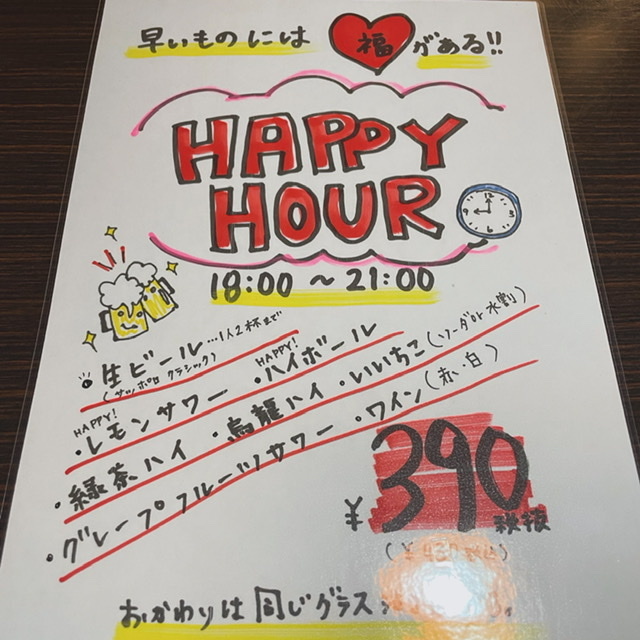 早いものには福がある!!
HAPPY
HOUR
18:00 ～ 21:00
・生ビール…1人2杯まで
(サッポロ クラシック)
HAPPY!
・レモンサワー
HAPPY!
・ハイボール
・緑茶ハイ ・烏龍ハイ ・いいちこ(ソーダor水割)
・グレープフルーツサワー ・ワイン(赤・白)
¥390税抜
おかわりは同じグラス